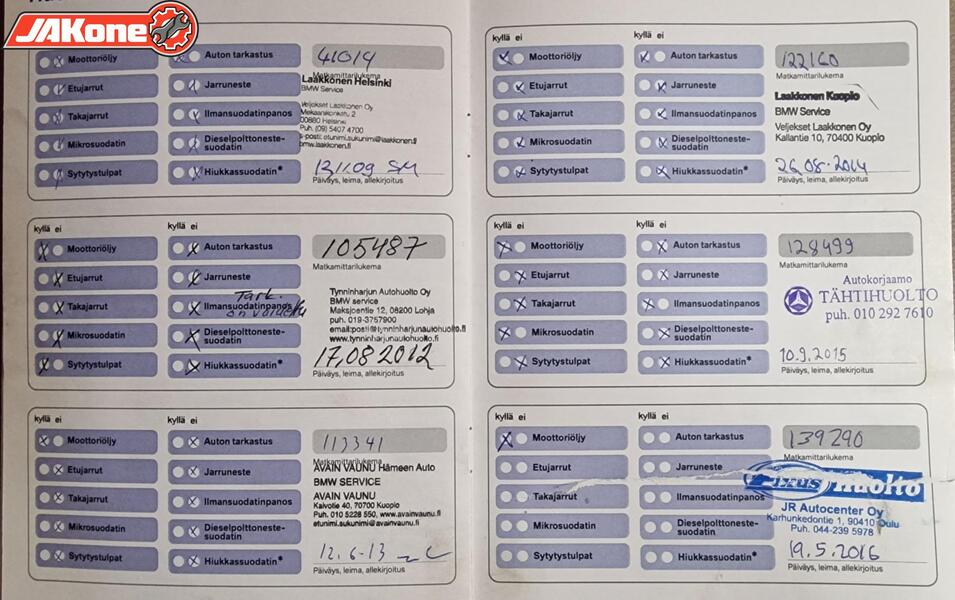 JAKone
kyllä ei
Moottoriöljy
Etujarrut
Takajarrut
Mikrosuodatin
Sytytystulpat
Auton tarkastus
Jarruneste
Ilmansuodatinpanos
Dieselpolttoneste-
suodatin
Hiukkassuodatin*
41019
Matkamittarilukema
Laakkonen Helsinki
BMW Service
Veljekset Laakkonen Oy
Mekaanikonkatu 2
00880 Helsinki
Puh. (09) 5407 4700
s-posti: etunimi.sukunimi@laakkonen.fi
bmw.laakkonen.fi
13.11.09 SM
Päiväys, leima, allekirjoitus
kyllä ei
kyllä ei
Moottoriöljy
Etujarrut
Takajarrut
Mikrosuodatin
Sytytystulpat
Auton tarkastus
Jarruneste
Ilmansuodatinpanos
Dieselpolttoneste-
suodatin
Hiukkassuodatin*
122160
Matkamittarilukema
Laakkonen Kuopio
BMW Service
Veljekset Laakkonen Oy
Kallantie 10, 70400 Kuopio
26.08.2014
Päiväys, leima, allekirjoitus
kyllä ei
kyllä ei
Moottoriöljy
Etujarrut
Takajarrut
Mikrosuodatin
Sytytystulpat
Auton tarkastus
Jarruneste
Tark.
Ilmansuodatinpanos
Dieselpolttoneste-
suodatin
Hiukkassuodatin*
105487
Matkamittarilukema
Tynninharjun Autohuolto Oy
BMW service
Maksjoentie 12, 08200 Lohja
puh. 019-3757900
email:posti@tynninharjunautohuolto.fi
www.tynninharjunautohuolto.fi
17.08.2012
Päiväys, leima, allekirjoitus
kyllä ei
kyllä ei
Moottoriöljy
Etujarrut
Takajarrut
Mikrosuodatin
Sytytystulpat
Auton tarkastus
Jarruneste
Ilmansuodatinpanos
Dieselpolttoneste-
suodatin
Hiukkassuodatin*
128499
Matkamittarilukema
Autokorjaamo
TÄHTIHUOLTO
puh. 010 292 7610
10.9.2015
Päiväys, leima, allekirjoitus
kyllä ei
kyllä ei
Moottoriöljy
Etujarrut
Takajarrut
Mikrosuodatin
Sytytystulpat
Auton tarkastus
Jarruneste
Ilmansuodatinpanos
Dieselpolttoneste-
suodatin
Hiukkassuodatin*
113341
Matkamittarilukema
AVAIN VAUNU Hämeen Auto
BMW SERVICE
AVAIN VAUNU
Kaivotie 40, 70700 Kuopio
Puh. 010 5228 550, www.avainvaunu.fi
etunimi.sukunimi@avainvaunu.fi
12.6-13
Päiväys, leima, allekirjoitus
kyllä ei
kyllä ei
Moottoriöljy
Etujarrut
Takajarrut
Mikrosuodatin
Sytytystulpat
Auton tarkastus
Jarruneste
Ilmansuodatinpanos
Dieselpolttoneste-
suodatin
Hiukkassuodatin*
139290
Matkamittarilukema
huolto
JR Autocenter Oy
Karhunkedontie 1, 90410 Oulu
Puh. 044-239 5978
19.5.2016
Päiväys, leima, allekirjoitus